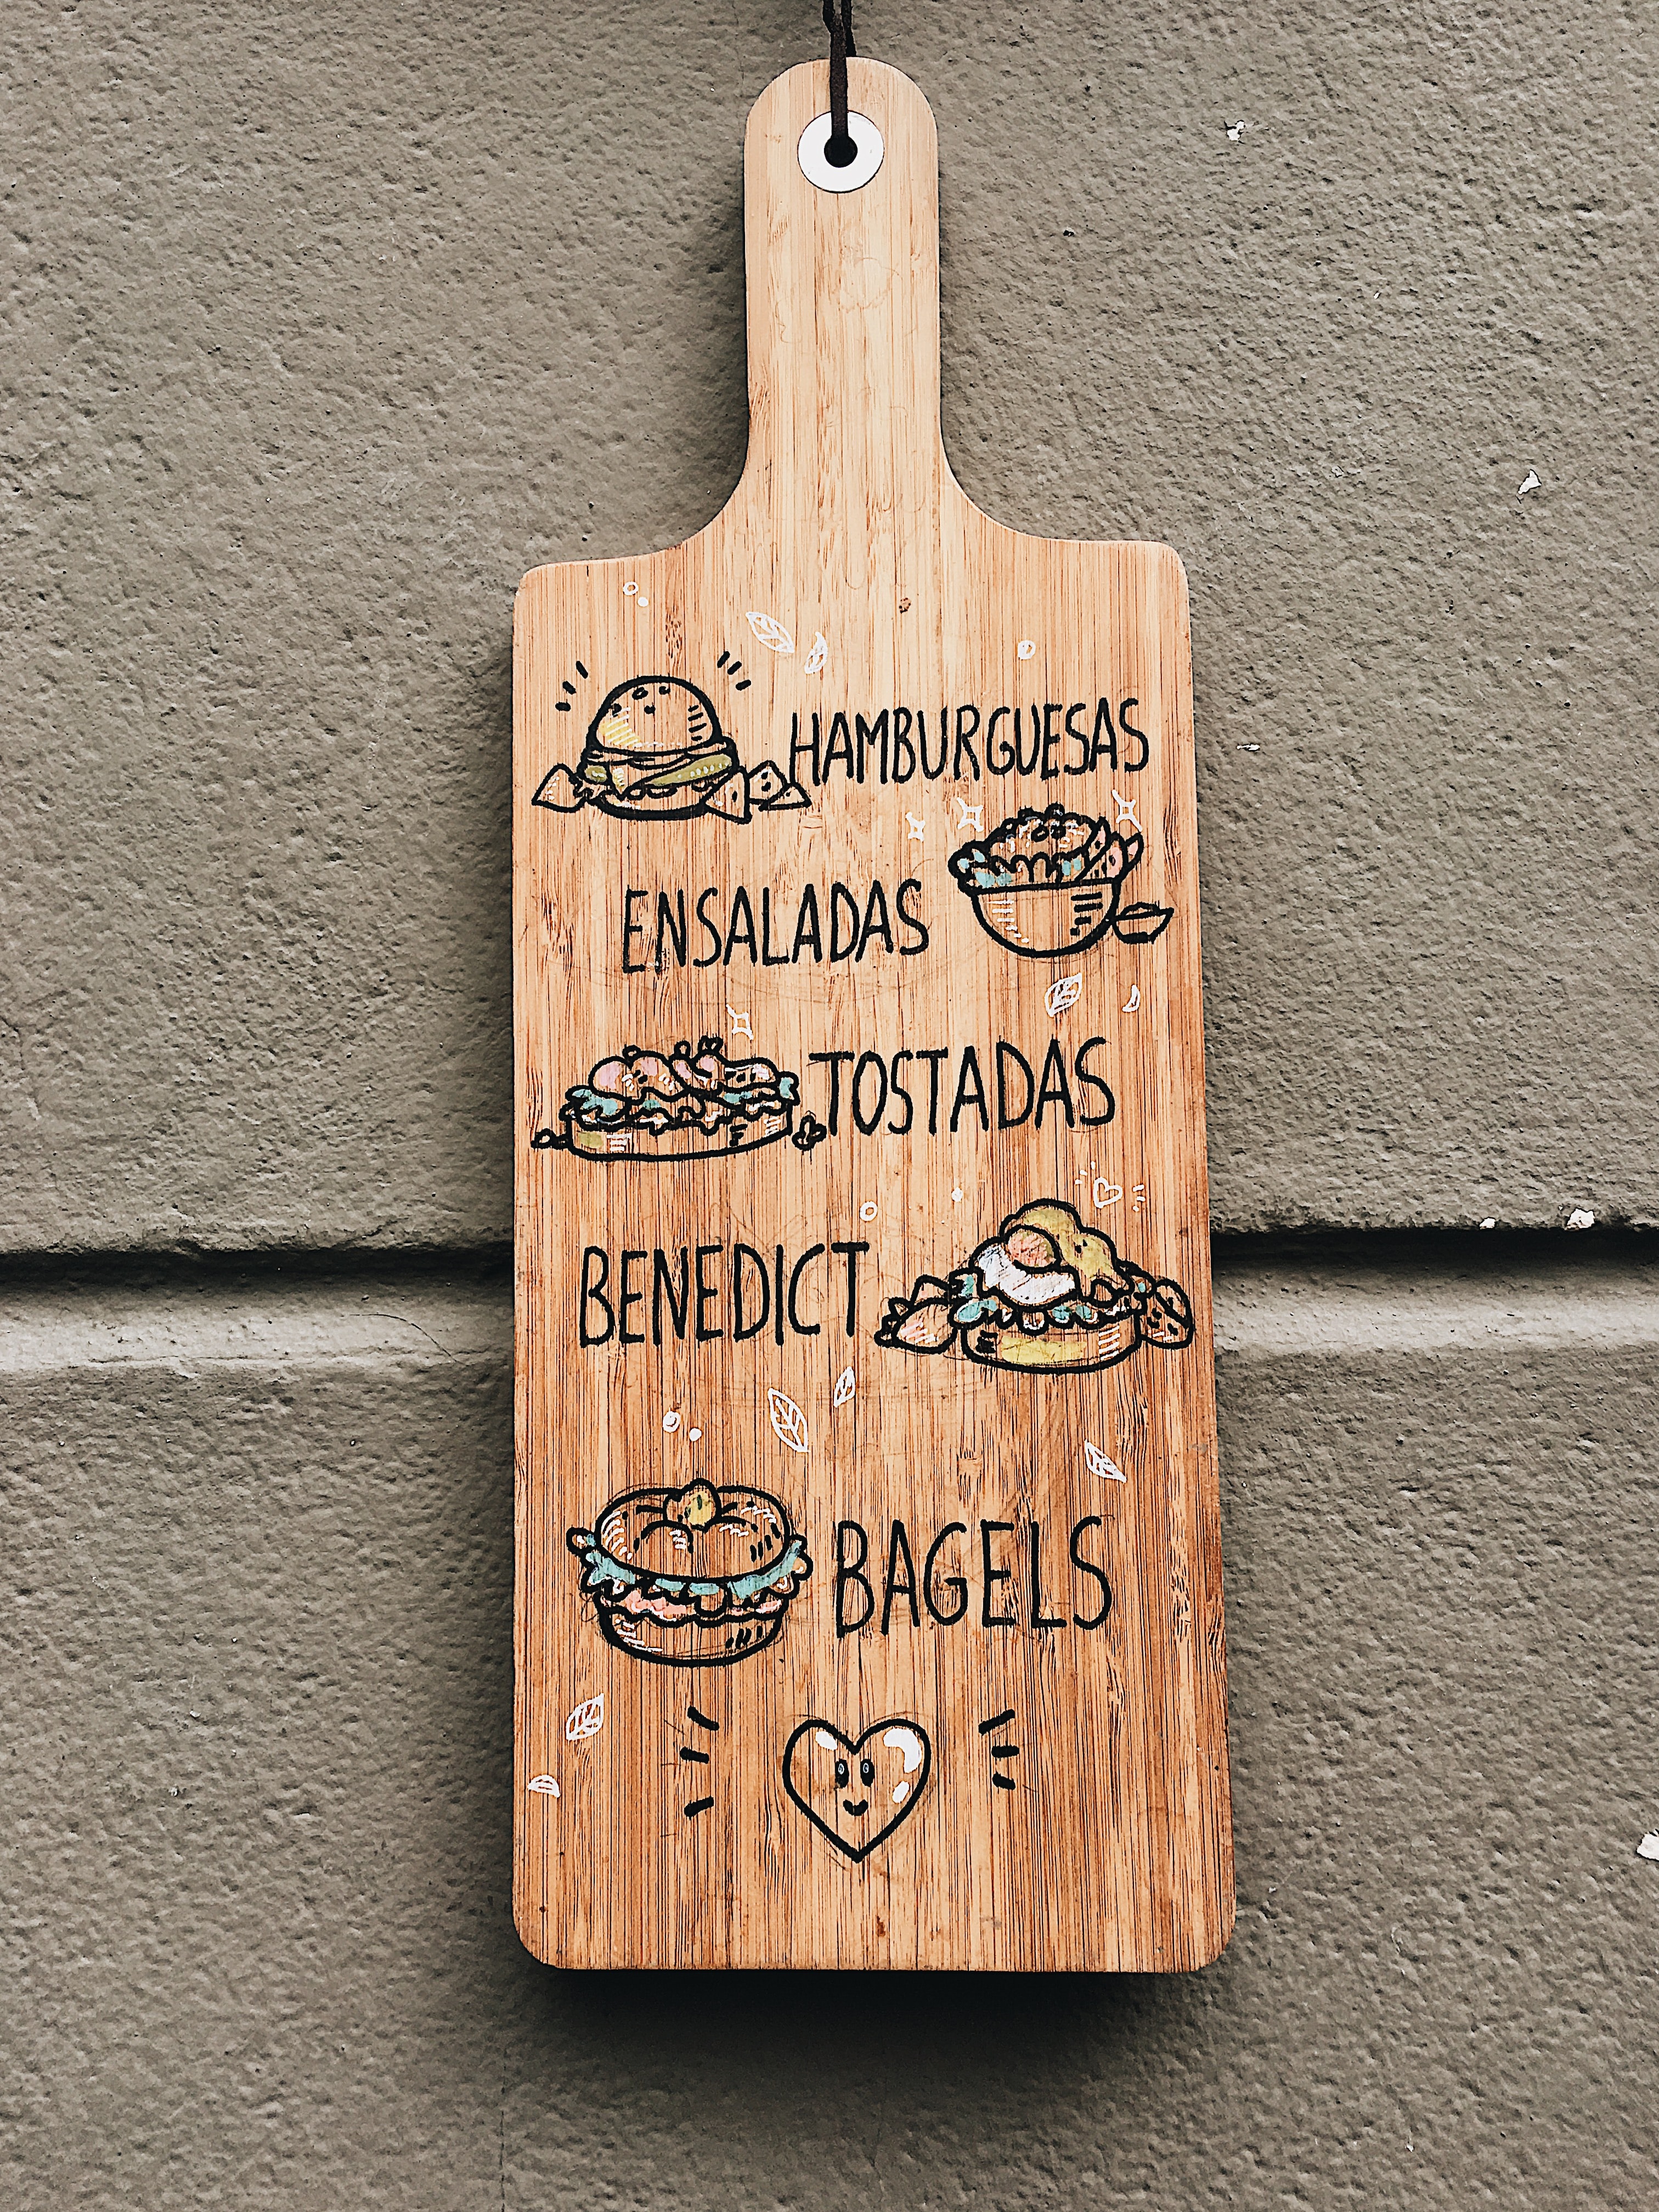 HAMBURGUESAS
ENSALADAS
TOSTADAS
BENEDICT
BAGELS